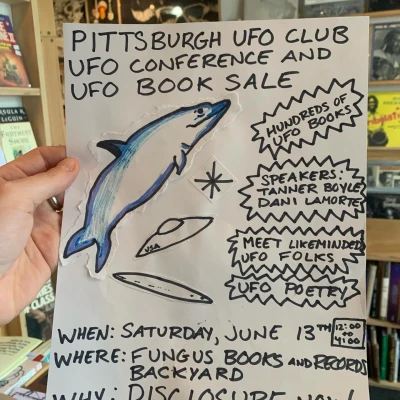 PITTSBURGH UFO CLUB
UFO CONFERENCE AND
UFO BOOK SALE
HUNDREDS OF
UFO BOOKS
SPEAKERS:
TANNER BOYLE
DANI LAMORTE
MEET LIKEMINDED
UFO FOLKS
UFO POETRY
USA
WHEN: SATURDAY, JUNE 13TH 12:00
TO
4:00
WHERE: FUNGUS BOOKS AND RECORDS
BACKYARD
WHY: DISCLOSURE NOW!